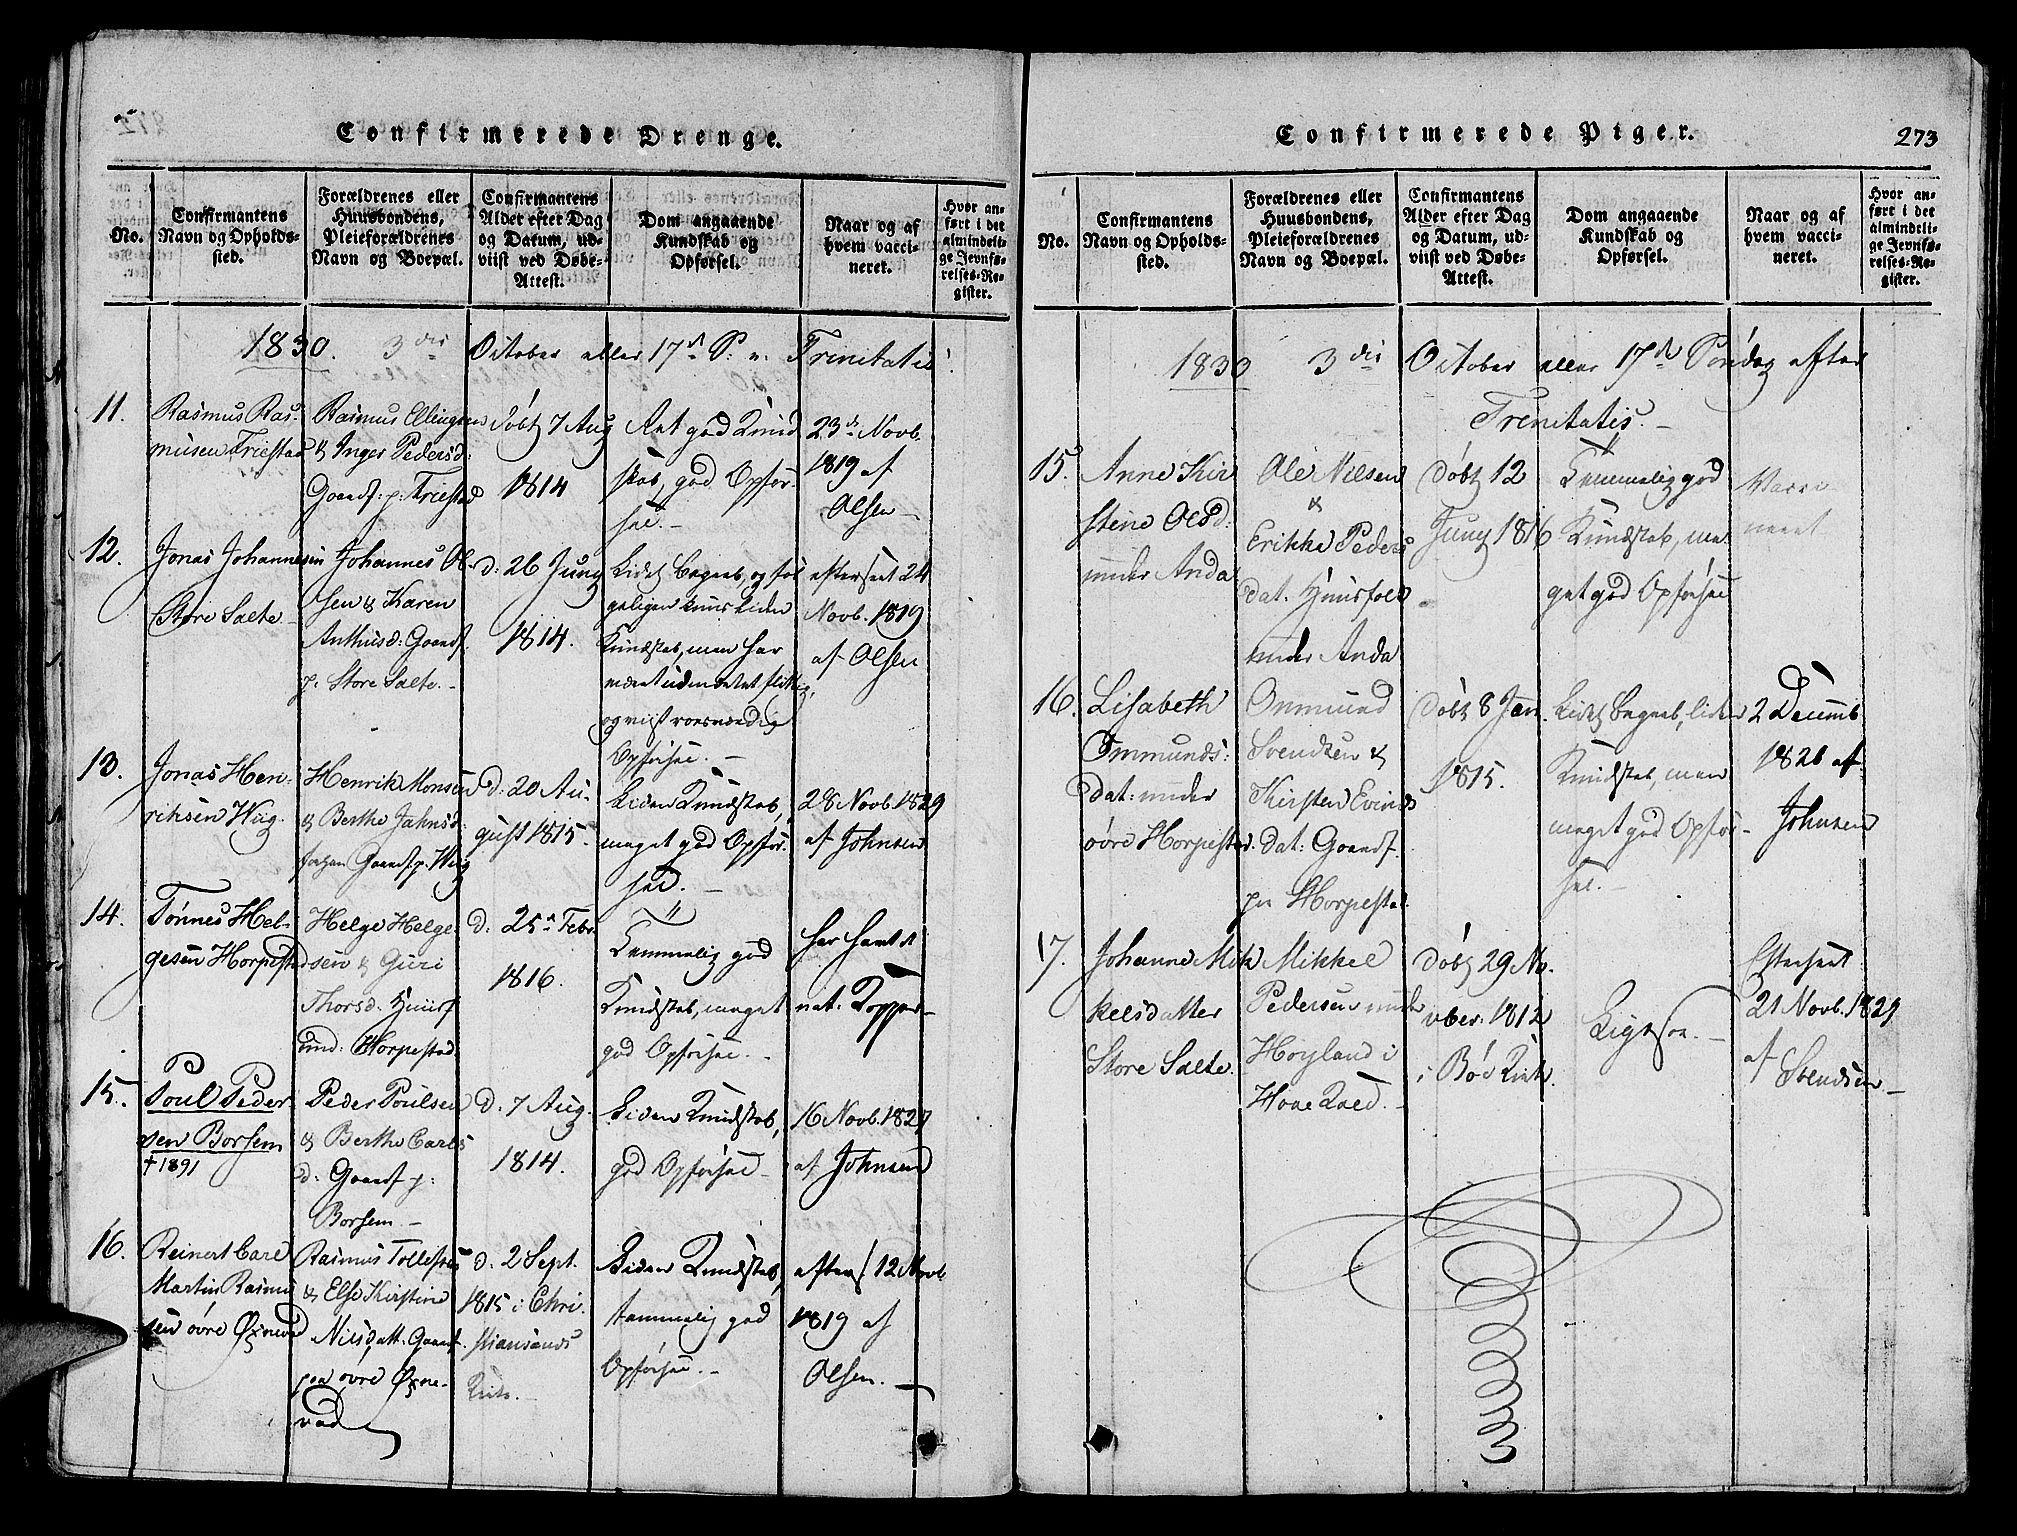 Confirmerede Drenge.
No.
Confirmantens Navn og Opholdssted.
Forældrenes eller Huusbondens, Pleieforældrenes Navn og Boepæl.
Confirmantens Alder efter Dag og Datum, udviist ved Døbe-Attest.
Dom angaaende Kundskab og Opførsel.
Naar og af hvem vaccineret.
Hvor anført i det almindelige Jevnførelses-Register.
1830. 3die October eller 17de S: e. Trinitatis
11.
Rasmus Ras-
musen Friestad
Rasmus Ellingsen
& Inger Pedersd:
Gaardf: p: Friestad
Døbt 7 Aug
1814
Meget god Kund
skab, god Opfør-
sel.
23de Novb.
1819 af
Olsen
12.
Jonas Johannesen
Store Salte
Johannes Ol-
sen & Karen
Anthusd: Gaardf.
p: Store Salte.
d: 26 Juny
1814.
Lidet Begreb, og føl
geligen kuns liden
Kundskab, men har
været udmærket flittig,
og viist roesværdig
Opførsel.
efter seet 24
Novb. 1819
af Olsen
13.
Jonas Hen-
riksen Wiig.
Henrik Monsen
& Berthe Jahnsd.
Gaardf. p. Wiig
D: 20 Au-
gust 1815.
Liden Kundskab,
meget god Opfør-
sel.
28 Novb. 1829
af Johnsen
14.
Tønnes Hel-
gesen Horpestad
Helge Helge
sen & Guri
Thorsd. Huusf
und: Horpestad.
d: 25de Febr.
1816.
Temmelig god
Kundskab, meget
god Opførsel.
har havt de
nat: Kopper
15.
Poul Peder
sen Borsem
†1891
Peder Poulsen
& Berthe Carls
d: Gaardf p:
Borsem
D. 7 Aug.
1814.
Liden Kundskab,
god Opførsel
16 Novb. 1827
af Johnsen
16.
Reinert Carl
Martin Rasmu
sen øvre Øxnevad
Rasmus Tollefsen
& Else Kirstine
Nilsdatt. Gaardf.
paa øvre Øxne-
vad
d. 2 Sept.
1815 i Chri
stiansands
Kirke.
Liden Kundskab,
temmelig god
Opførsel.
efters 12 Novb
1819 af
Olsen.
Confirmerede Piger.
273
No.
Confirmantens Navn og Opholdssted.
Forældrenes eller Huusbondens, Pleieforældrenes Navn og Boepæl.
Confirmantens Alder efter Dag og Datum, udviist ved Døbe-Attest.
Dom angaaende Kundskab og Opførsel.
Naar og af hvem vaccineret.
Hvor anført i det almindelige Jevnførelses-Register.
1830 3die October eller 17de Søndag efter
Trenitatis.
15.
Anne Kir
stine Olsd:
under Anda
Ole Nilsen
&
Erikke Peders
dat. Huusfolk
under Anda
Døbt 12
Juny 1816
Temmelig god
Kundskab, me
get god Opførsel
Vacci
neret
16.
Lisabeth
Ommunds:
dat: under
øvre Horpestad.
Ommund
Svendsen &
Kirsten Evinds
dat: Gaardf.
paa Horpestad
Døbt 8 Jan.
1815.
Lidet Begreb, liden
Kundskab, men
meget god Opfør-
sel.
2 Decemb
1826 af
Johnsen
17.
Johanne Mik
kelsdatter
Store Salte.
Mikkel
Pedersen under
Høyland i
Haae Præd.
Døbt 29 No-
vber. 1812
i Bøe Kirk.
Ligesaa.
Efterseet
21 Novb. 1829
af
Svendsen